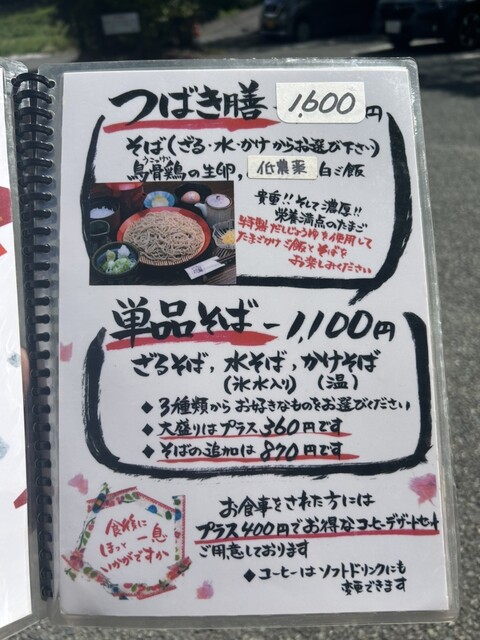 つばき膳 - 1,600円
そば(ざる・水・かけからお選び下さい)
うこっけい
烏骨鶏の生卵, 低農薬 白ご飯
貴重!! そして濃厚!!
栄養満点のたまご
特製だしじょうゆを使用して
たまごかけご飯とそばを
お楽しみください
単品そば - 1,100円
ざるそば, 水そば, かけそば
(氷水入り) (温)
◆ 3種類からお好きなものをお選びください
◆ 大盛りはプラス360円です
◆ そばの追加は870円です
食後に
ほっと一息
いかがですか
お食事をされた方には
プラス400円でお得なコーヒーデザートセット
ご用意しております
◆ コーヒーはソフトドリンクにも
変更できます